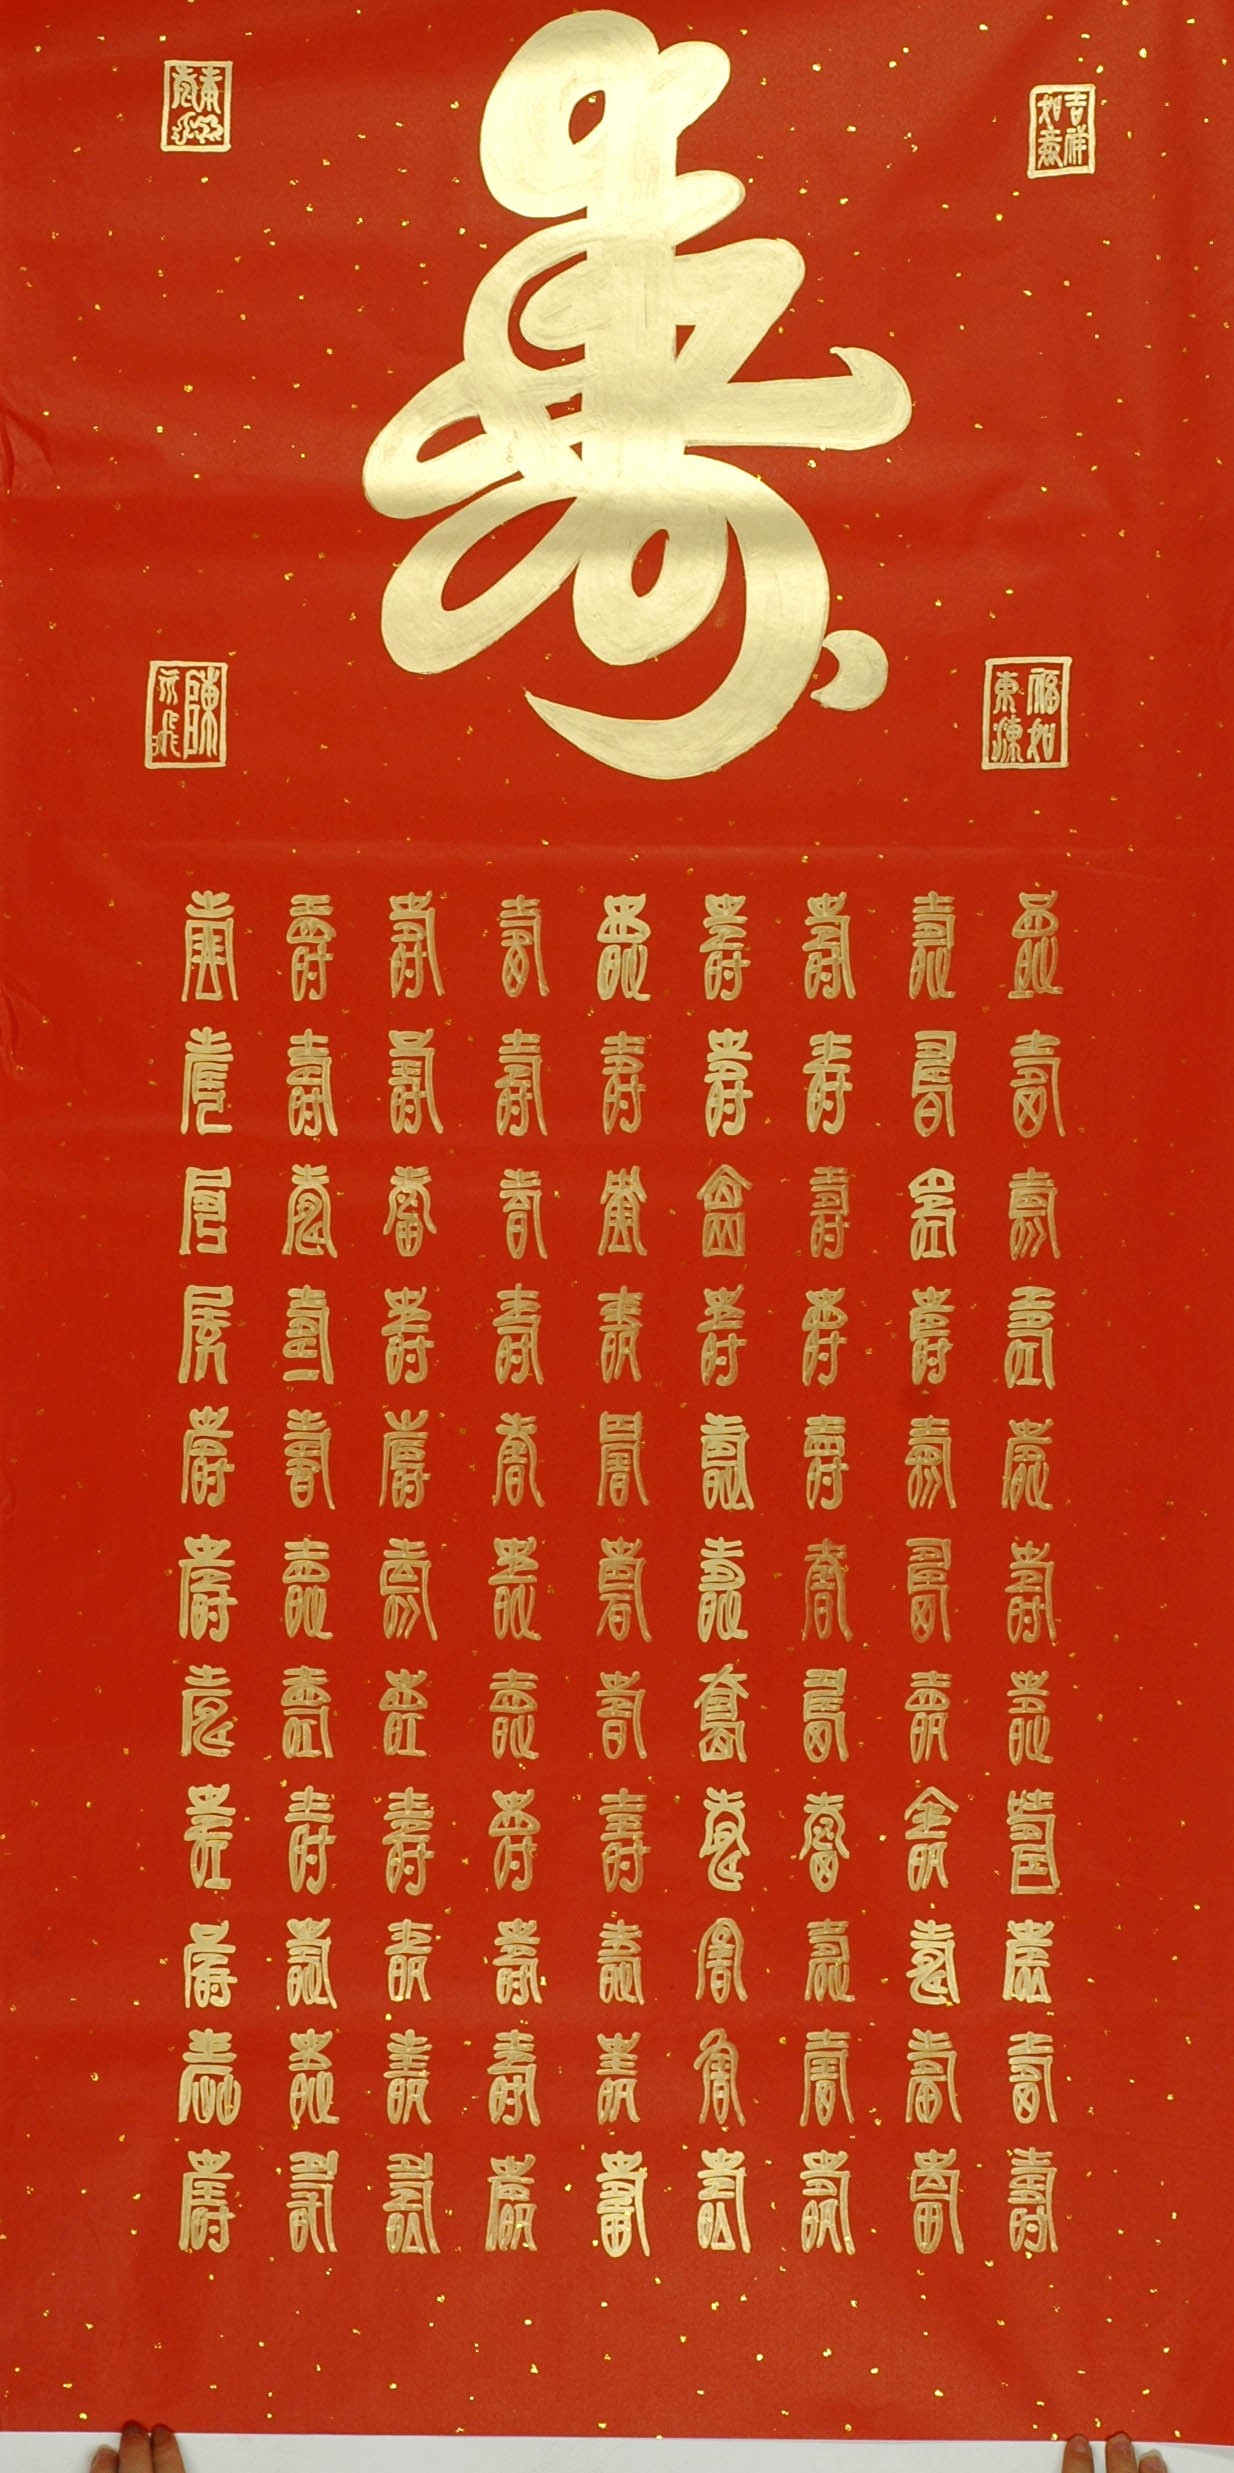 壽
吉祥如意
福如東海
陳
壽壽壽壽壽壽壽壽壽壽壽
壽壽壽壽壽壽壽壽壽壽壽
壽壽壽壽壽壽壽壽壽壽壽
壽壽壽壽壽壽壽壽壽壽壽
壽壽壽壽壽壽壽壽壽壽壽
壽壽壽壽壽壽壽壽壽壽壽
壽壽壽壽壽壽壽壽壽壽壽
壽壽壽壽壽壽壽壽壽壽壽
壽壽壽壽壽壽壽壽壽壽壽